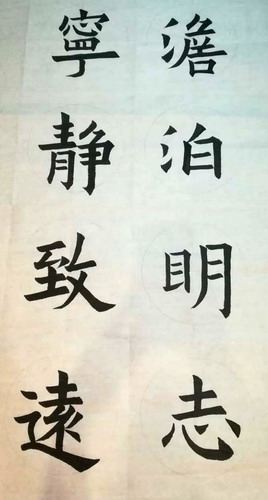 澹泊明志
寧静致遠